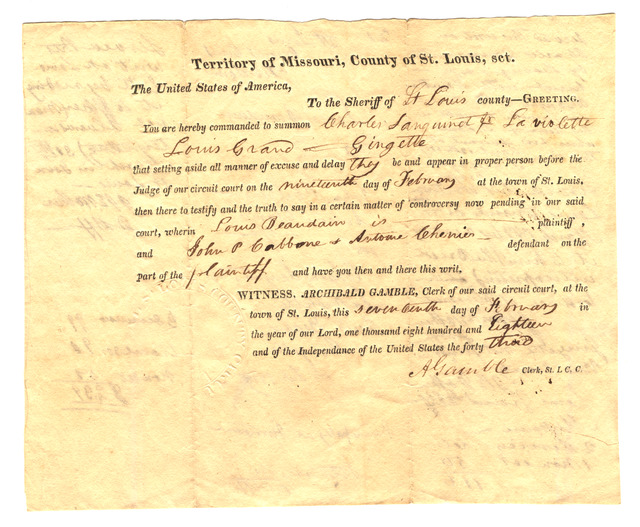 Territory of Missouri, County of St. Louis, sct.
The United States of America,
To the Sheriff of St Louis county—GREETING.
You are hereby commanded to summon Charles Sanguinet La violette
Louis Grand — Gingette
that setting aside all manner of excuse and delay they be and appear in proper person before the
Judge of our circuit court on the nineteenth day of February at the town of St. Louis,
then there to testify and the truth to say in a certain matter of controversy now pending in our said
court, wherein Louis Beaudain is plaintiff,
and John P Cabbone & Antoine Chenier defendant on the
part of the plaintiff and have you then and there this writ.
WITNESS, ARCHIBALD GAMBLE, Clerk of our said circuit court, at the
town of St. Louis, this seventeenth day of February in
the year of our Lord, one thousand eight hundred and Eighteen
and of the Independence of the United States the forty third
A Gamble Clerk, St. L C. C.